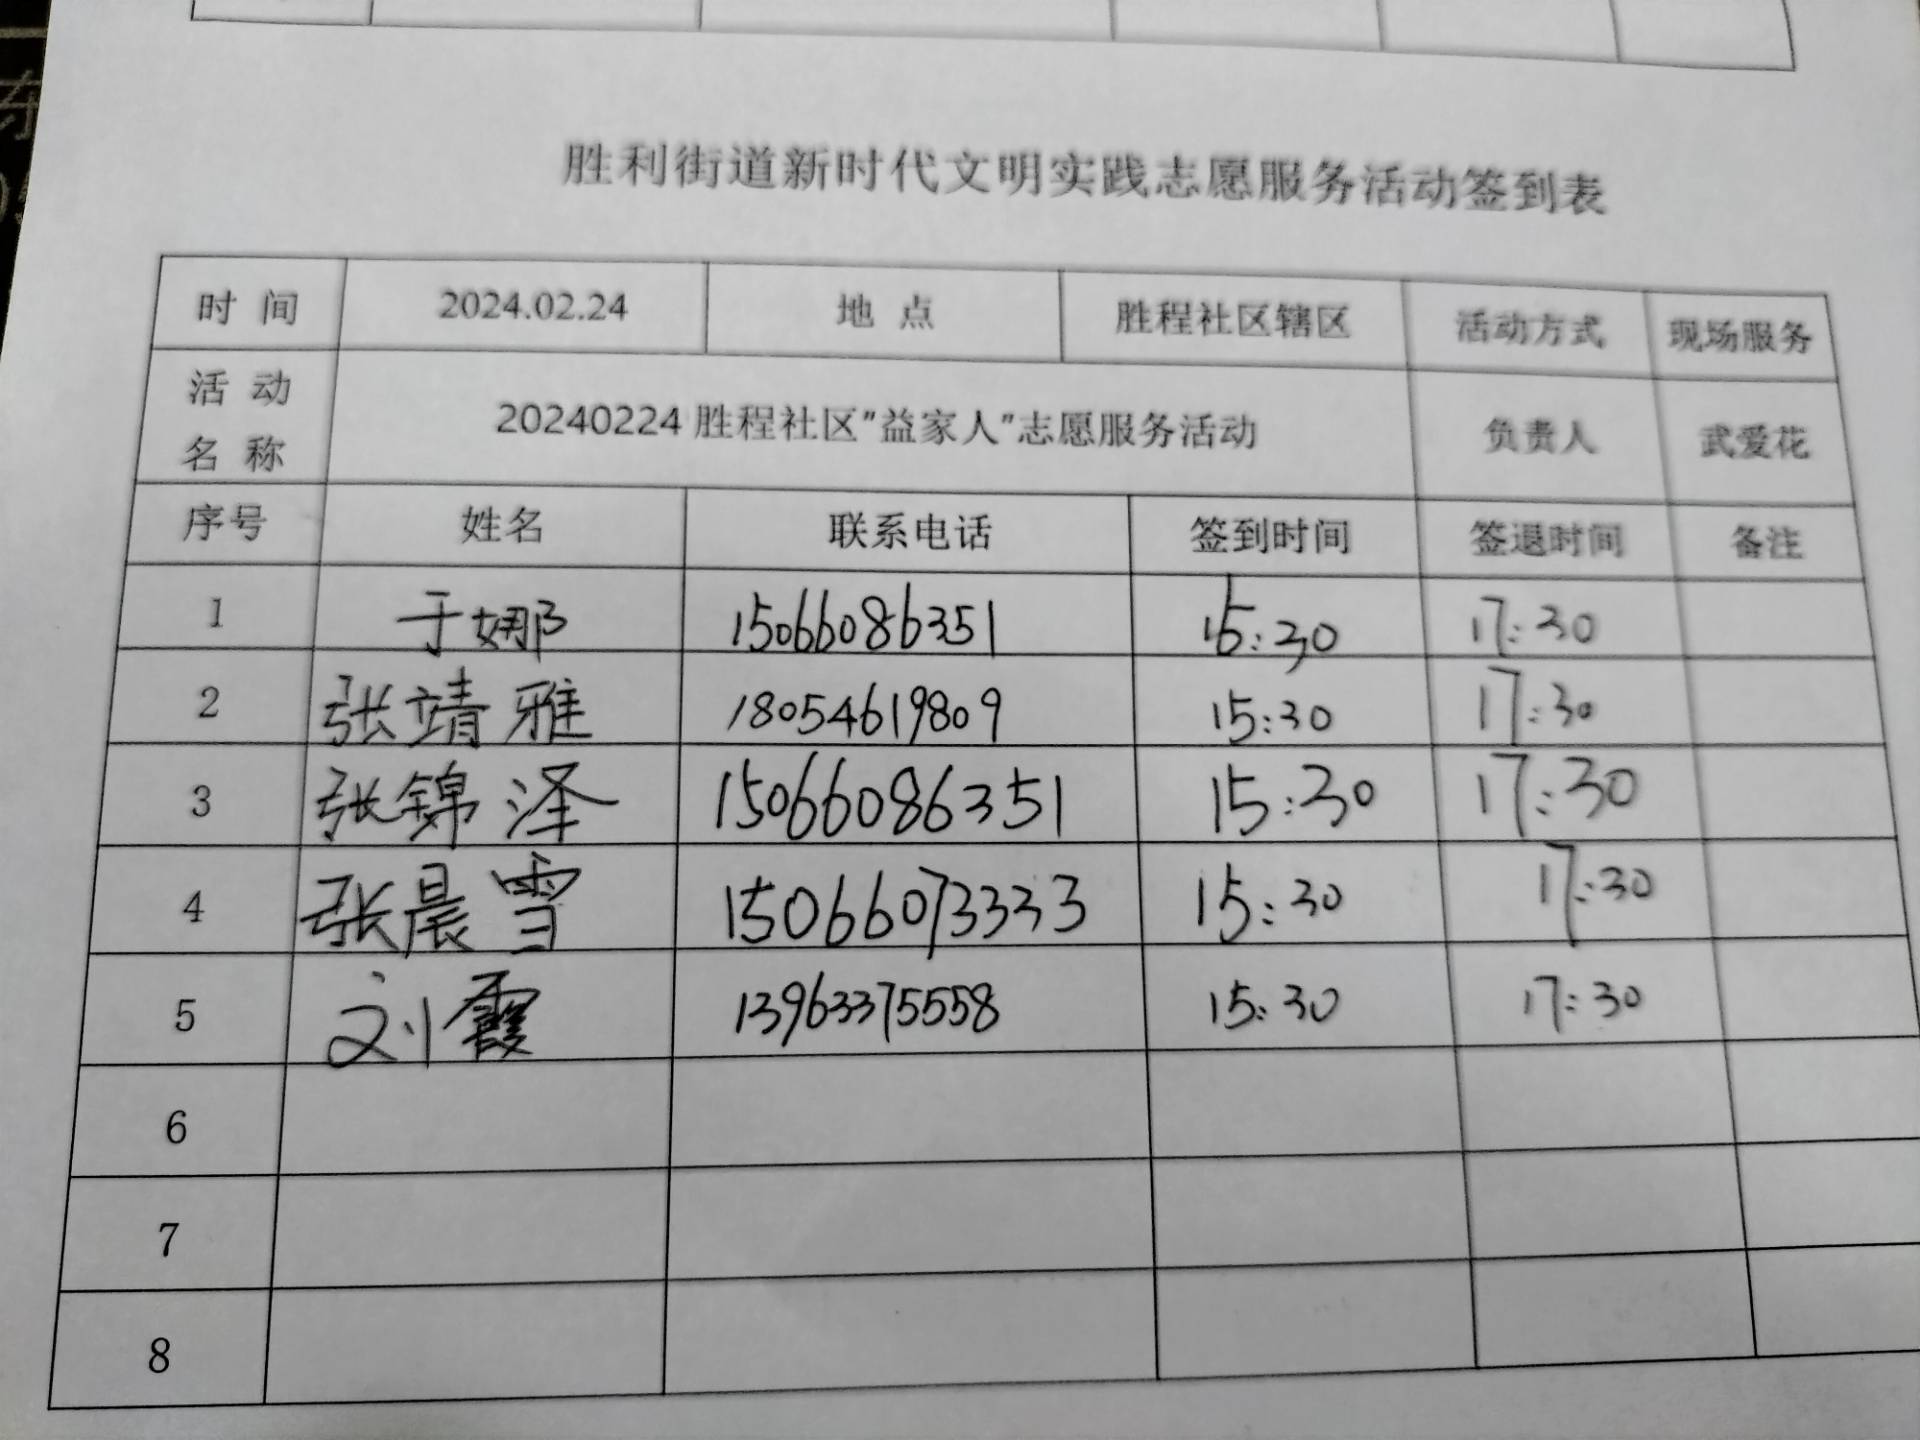 胜利街道新时代文明实践志愿服务活动签到表
时 间 2024.02.24 地 点 胜程社区辖区 活动方式 现场服务
活 动
名 称 20240224胜程社区"益家人"志愿服务活动 负责人 武爱花
序号 姓名 联系电话 签到时间 签退时间 备注
1 于娜 15066086351 15:30 17:30
2 张靖雅 18054619809 15:30 17:30
3 张锦泽 15066086351 15:30 17:30
4 张晨雪 15066073333 15:30 17:30
5 刘霞 13963375558 15:30 17:30
6
7
8